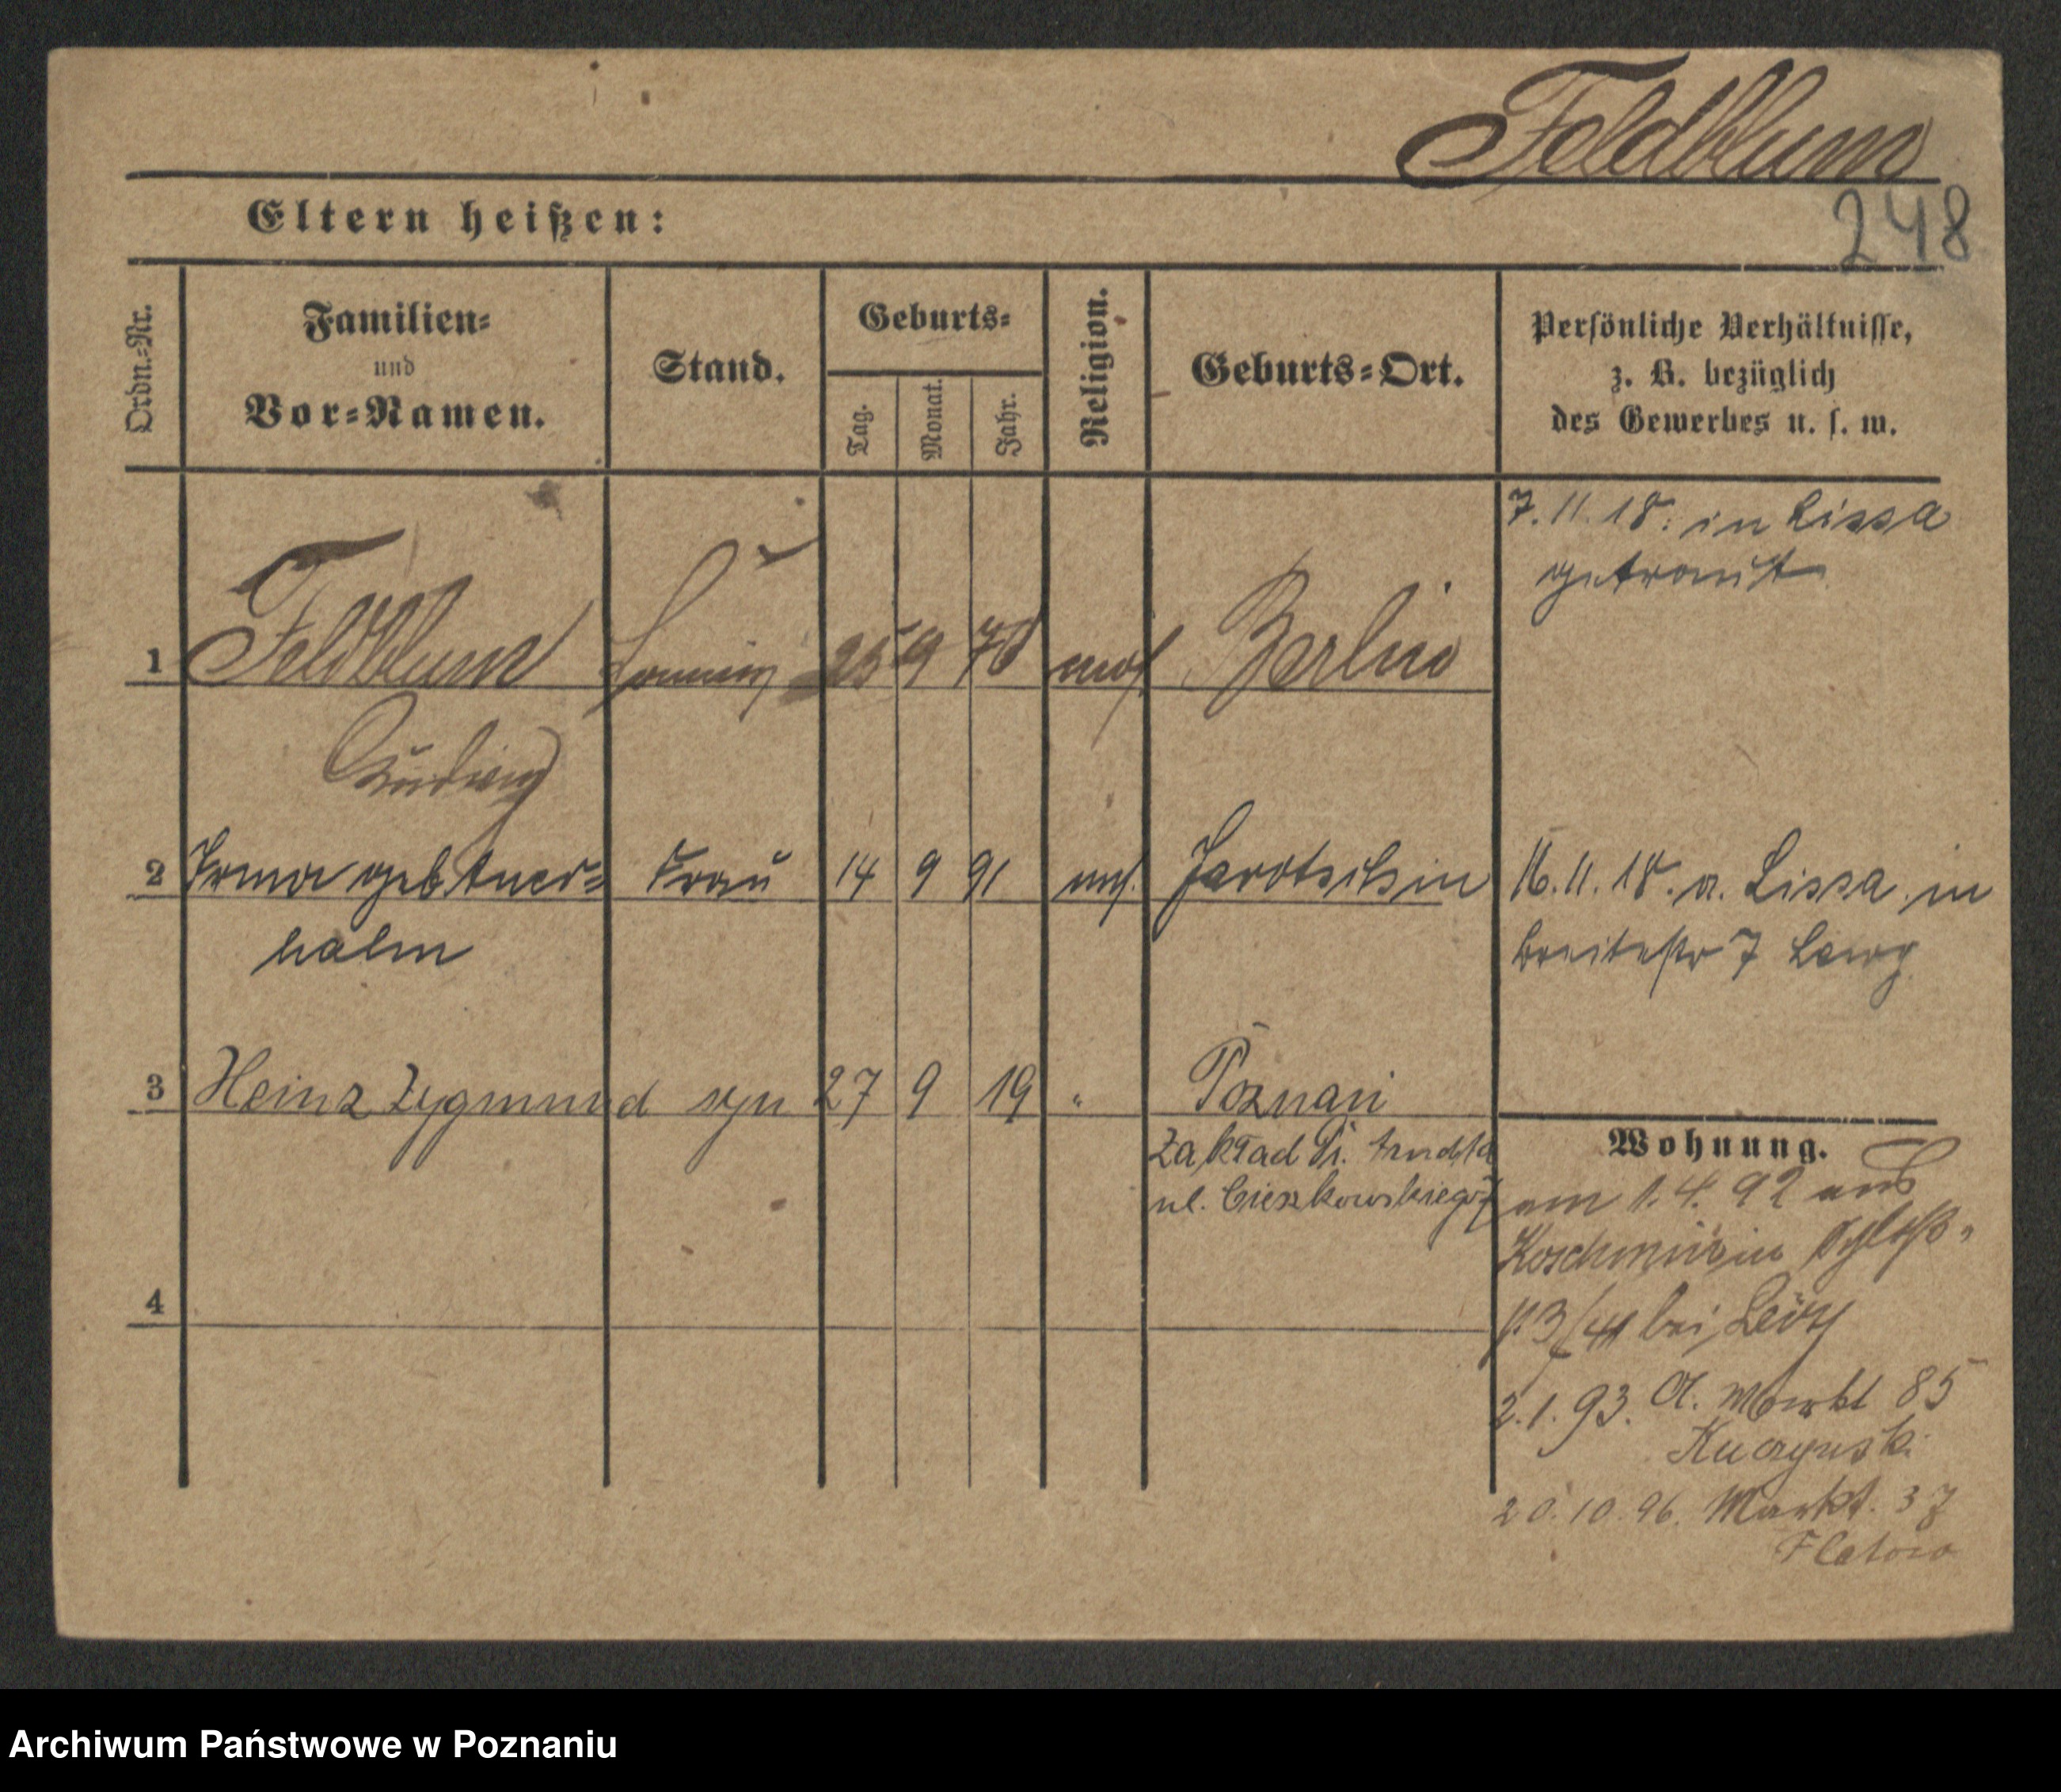 Feldblum
248
Eltern heißen:
Ordn.-Nr.
Familien-
und
Vor-Namen.
Stand.
Geburts-
Tag.
Monat.
Jahr.
Religion.
Geburts-Ort.
Persönliche Verhältnisse,
z. B. bezüglich
des Gewerbes u. s. w.
7. 11. 18. in Lissa
getraut
1 Feldblum 25 9 78 mos Berlin
Ludwig
2 Irma geb. Auer- Frau 14 9 91 mos. Jarotschin
halm
16. 11. 18. a. Lissa in
Breitestr 7
3 Heinz Zygmund syn 27 9 19 " Poznań
Zakład Dr.
ul. Cieszkowskiego
4
Wohnung.
am 1. 4. 92 aus
Koschmin Schloß-
bei Levy
2. 1. 93. A. Markt 85
Kuczynski
20. 10. 96. Markt. 37
Flatow
Archiwum Państwowe w Poznaniu